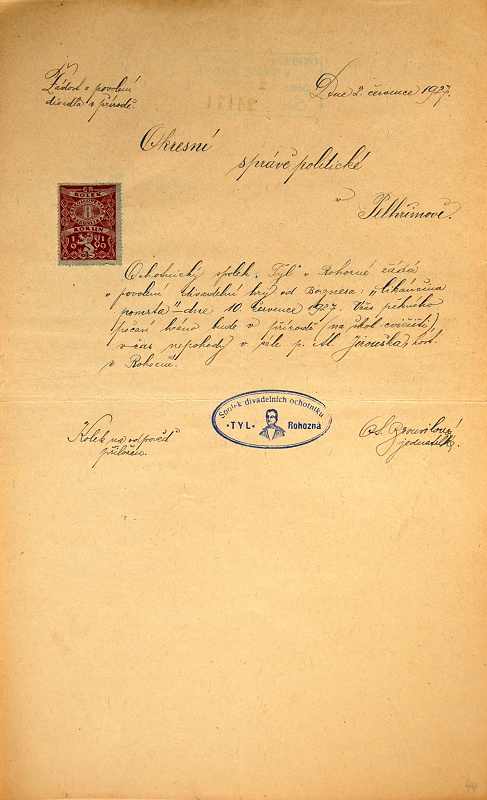 Žádost o povolení
divadla v přírodě.
Dne 2. července 1927.
Okresní
správě politické
v
Pelhřimově.
KOLEK
8
KORUN
Ochotnický spolek „Tyl" v Rohozné žádá
o povolení divadelní hry od Boznera: „Cikánčina
pomsta" dne 10. července 1927. Včas pěkného
počasí hráno bude v přírodě (na školním cvičišti)
v čas nepohody v sále p. Al. Jirouška, host.
v Rohozné.
Kolek na odpověď
přiložen.
Spolek divadelních ochotníků
•TYL• Rohozná
jednatel.
44